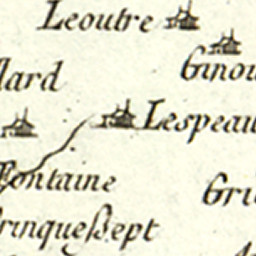 Leoutre
Ginou
lard
Lespeau
Fontaine
Gri
rinqueßept